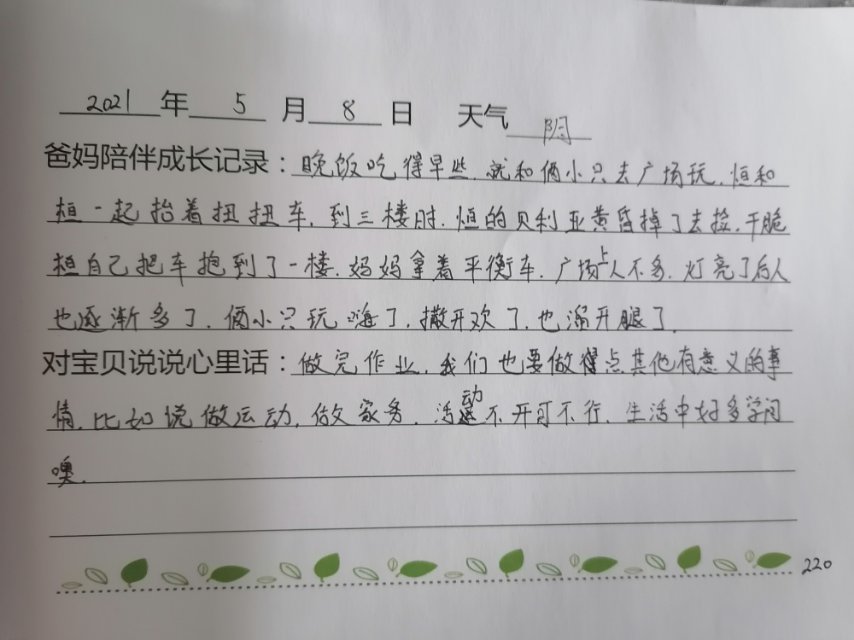 2021年 5 月 8 日 天气 阴
爸妈陪伴成长记录：晚饭吃得早些 就和俩小只去广场玩，恒和
桓一起抬着扭扭车，到三楼时，恒的贝利亚黄昏掉了去捡，干脆
桓自己把车抱到了一楼，妈妈拿着平衡车，广场上人不多，灯亮了后人
也逐渐多了，俩小只玩嗨了，撒开欢了，也溜开腿了。
对宝贝说说心里话：做完作业，我们也要做点其他有意义的事
情，比如说做运动，做家务，活动不开可不行，生活中好多学问
噢。
220